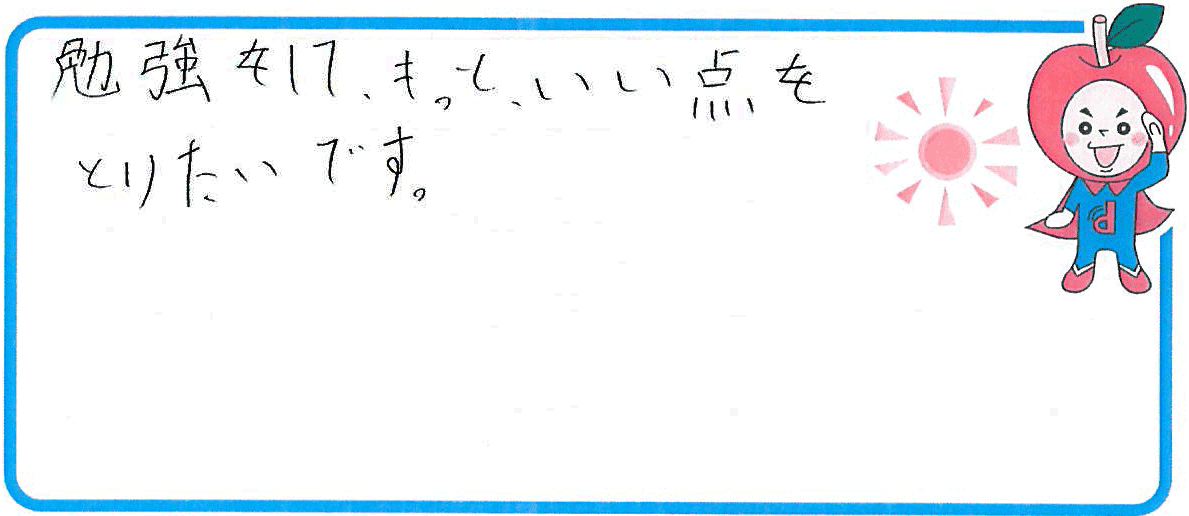 勉強をして、もっと、いい点を
とりたいです。